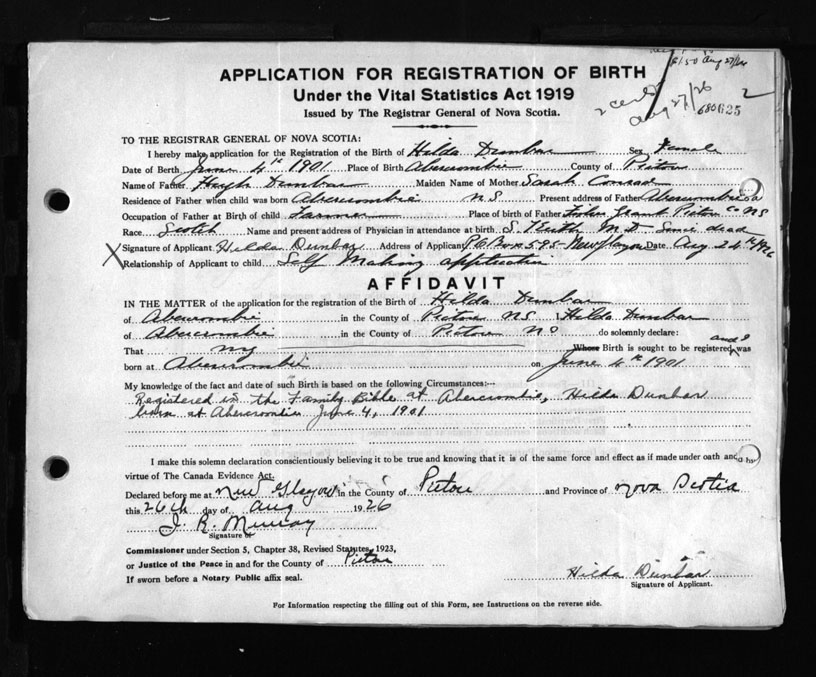 $1.50 Aug 27/26
2 certs
Aug 27/26
680625
2
APPLICATION FOR REGISTRATION OF BIRTH
Under the Vital Statistics Act 1919
Issued by The Registrar General of Nova Scotia.
TO THE REGISTRAR GENERAL OF NOVA SCOTIA:
I hereby make application for the Registration of the Birth of Hilda Dunbar Sex Female
Date of Birth June 4th 1901 Place of Birth Abercrombie County of Pictou
Name of Father Hugh Dunbar Maiden Name of Mother Sarah Conrad
Residence of Father when child was born Abercrombie N.S Present address of Father Abercrombie
Occupation of Father at Birth of child Farmer Place of birth of Father Grant Pictou Co NS
Race Scotch Name and present address of Physician in attendance at birth M.D. Since dead
X Signature of Applicant Hilda Dunbar Address of Applicant P.O Box 595 New Glasgow Date Aug 24th 1926
Relationship of Applicant to child Self Making application
AFFIDAVIT
IN THE MATTER of the application for the registration of the Birth of Hilda Dunbar
of Abercrombie in the County of Pictou NS I Hilda Dunbar
of Abercrombie in the County of Pictou NS do solemnly declare:
That my Whose Birth is sought to be registered and I was
born at Abercrombie on June 4th 1901
My knowledge of the fact and date of such Birth is based on the following Circumstances:—
Registered in the Family Bible at Abercrombie, Hilda Dunbar
born at Abercrombie June 4, 1901
I make this solemn declaration conscientiously believing it to be true and knowing that it is of the same force and effect as if made under oath and by
virtue of The Canada Evidence Act.
Declared before me at New Glasgow in the County of Pictou and Province of Nova Scotia
this 26th day of Aug 1926
J. R. Murray
Signature of
Commissioner under Section 5, Chapter 38, Revised Statutes, 1923,
or Justice of the Peace in and for the County of Pictou
If sworn before a Notary Public affix seal.
Hilda Dunbar
Signature of Applicant.
For Information respecting the filling out of this Form, see Instructions on the reverse side.